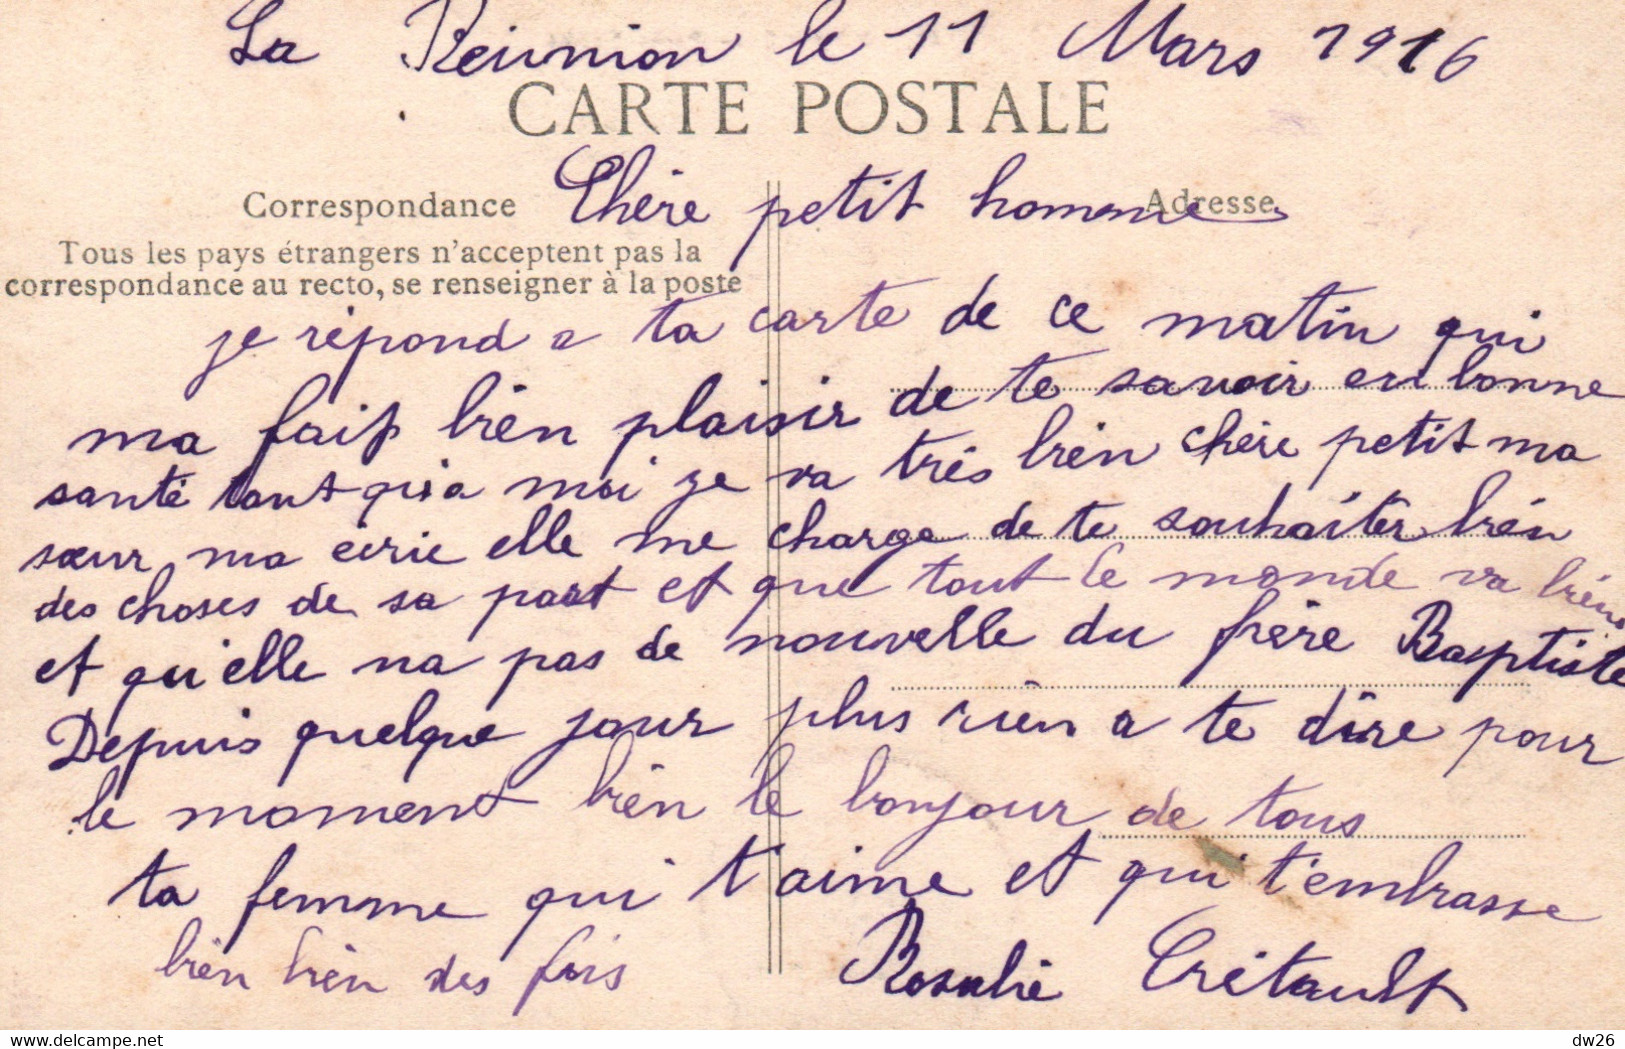 La Reunion le 11 Mars 1916
CARTE POSTALE
Correspondance
Adresse
Tous les pays étrangers n'acceptent pas la
correspondance au recto, se renseigner à la poste
Chère petit homme
je répond a ta carte de ce matin qui
ma fait bien plaisir de te savoir en bonne
santé tant qu'a moi je va très bien chère petit ma
sœur ma ecrie elle me charge de te souhaiter bien
des choses de sa part et que tout le monde va bien
et qu'elle na pas de nouvelle du frère Baptiste
Depuis quelque jour plus rien a te dire pour
le moment bien le bonjour de tous
ta femme qui t'aime et qui t'embrasse
bien bien des fois
Rosalie Crétault
dw26